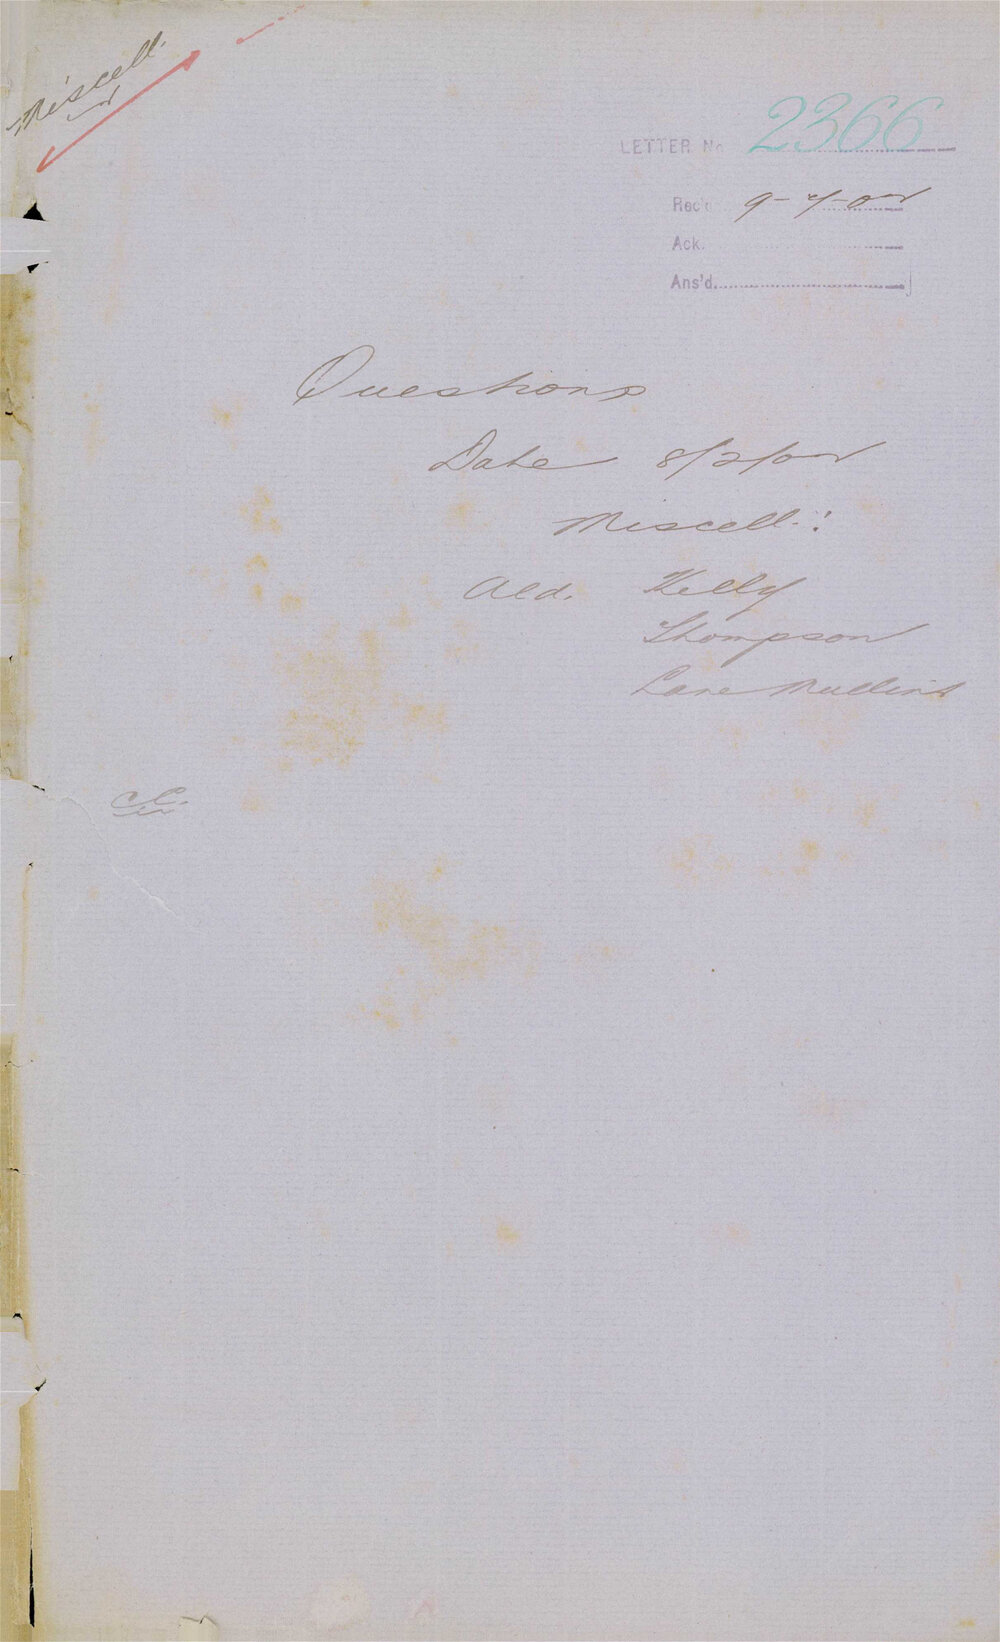 Miscell.
LETTER No 2366
Rec'd 9-7-02
Ack.
Ans'd.
Questions
Date 8/7/02
Miscell.:
Ald. Kelly
Thompson
Lane Mullins
C.C.